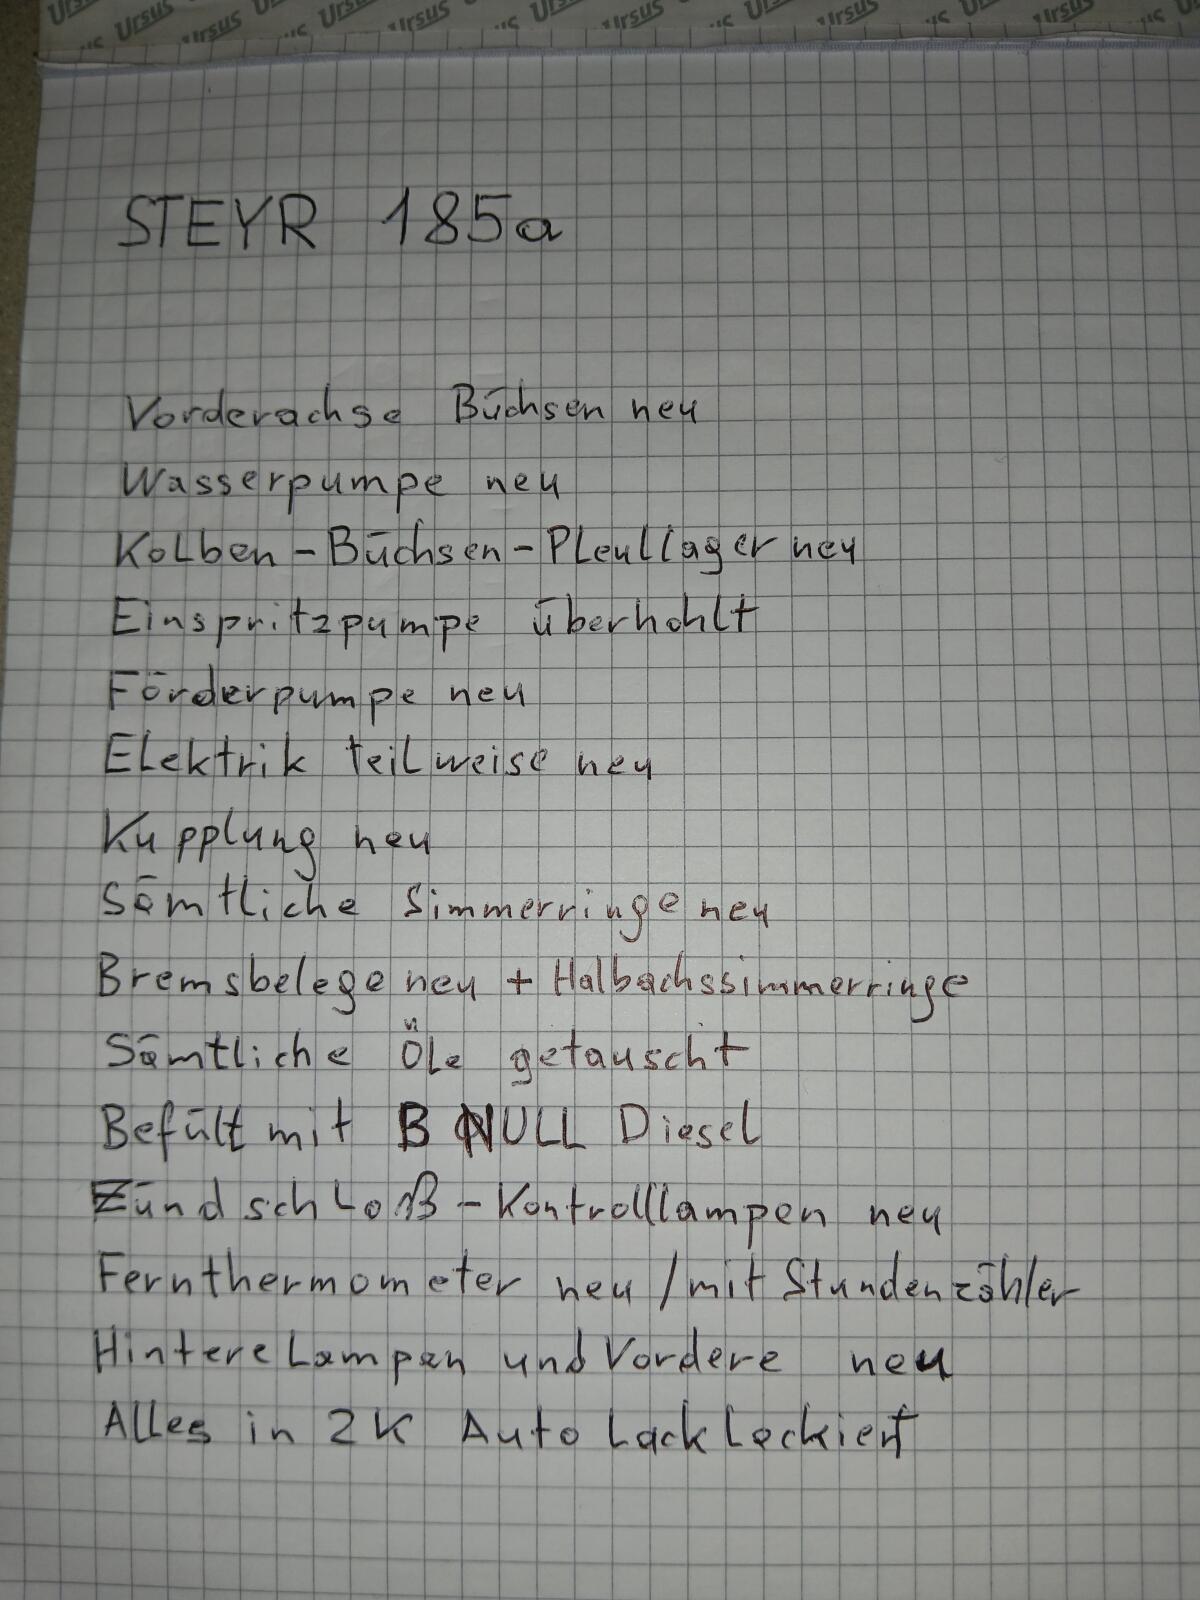 Ursus Ursus Ursus Ursus Ursus Ursus
us Ursus us Ursus us Ursus us Ursus
STEYR 185a
Vorderachse Büchsen neu
Wasserpumpe neu
Kolben - Büchsen - Pleullager neu
Einspritzpumpe überhohlt
Förderpumpe neu
Elektrik teilweise neu
Kupplung neu
Sämtliche Simmerringe neu
Bremsbelege neu + Halbachssimmerringe
Sämtliche Öle getauscht
Befült mit B NULL Diesel
Zündschloß - Kontrolllampen neu
Fernthermometer neu / mit Stundenzähler
Hintere Lampen und Vordere neu
Alles in 2K Auto Lack Lackiert